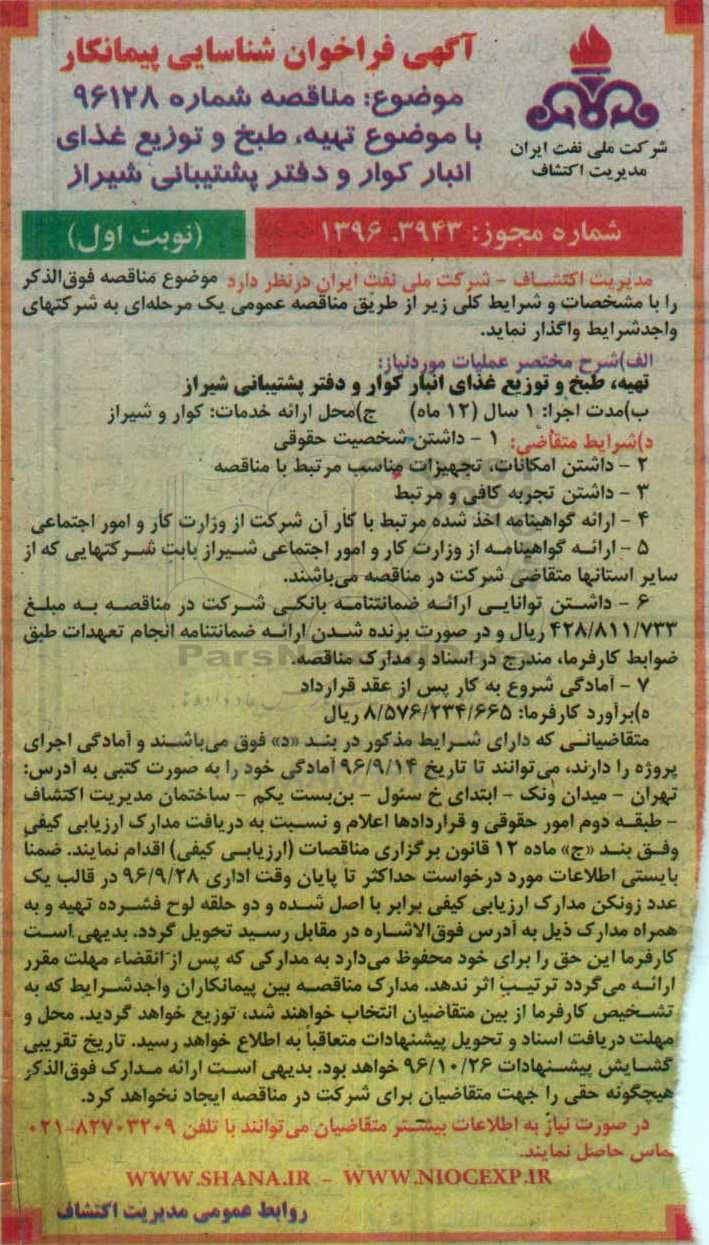 آگهی فراخوان شناسایی پیمانکار
موضوع: مناقصه شماره ۹۶۱۲۸
با موضوع تهیه، طبخ و توزیع غذای
انبار کوار و دفتر پشتیبانی شیراز
شرکت ملی نفت ایران
مدیریت اکتشاف
شماره مجوز: ۳۹۴۳. ۱۳۹۶
(نوبت اول)
مدیریت اکتشاف - شرکت ملی نفت ایران درنظر دارد موضوع مناقصه فوق‌الذکر
را با مشخصات و شرایط کلی زیر از طریق مناقصه عمومی یک مرحله‌ای به شرکتهای
واجدشرایط واگذار نماید.
الف)شرح مختصر عملیات موردنیاز:
تهیه، طبخ و توزیع غذای انبار کوار و دفتر پشتیبانی شیراز
ب)مدت اجرا: ۱ سال (۱۲ ماه) ج)محل ارائه خدمات: کوار و شیراز
د)شرایط متقاضی: ۱ - داشتن شخصیت حقوقی
۲ - داشتن امکانات، تجهیزات مناسب مرتبط با مناقصه
۳ - داشتن تجربه کافی و مرتبط
۴ - ارائه گواهینامه اخذ شده مرتبط با کار آن شرکت از وزارت کار و امور اجتماعی
۵ - ارائه گواهینامه از وزارت کار و امور اجتماعی شیراز بابت شرکتهایی که از
سایر استانها متقاضی شرکت در مناقصه می‌باشند.
۶ - داشتن توانایی ارائه ضمانتنامه بانکی شرکت در مناقصه به مبلغ
۴۲۸/۸۱۱/۷۳۳ ریال و در صورت برنده شدن ارائه ضمانتنامه انجام تعهدات طبق
ضوابط کارفرما، مندرج در اسناد و مدارک مناقصه.
ParsNamadData
۷ - آمادگی شروع به کار پس از عقد قرارداد
ه)برآورد کارفرما: ۸/۵۷۶/۲۳۴/۶۶۵ ریال
متقاضیانی که دارای شرایط مذکور در بند «د» فوق می‌باشند و آمادگی اجرای
پروژه را دارند، می‌توانند تا تاریخ ۹۶/۹/۱۴ آمادگی خود را به صورت کتبی به آدرس:
تهران - میدان ونک - ابتدای خ سئول - بن‌بست یکم - ساختمان مدیریت اکتشاف
- طبقه دوم امور حقوقی و قراردادها اعلام و نسبت به دریافت مدارک ارزیابی کیفی
وفق بند «ج» ماده ۱۲ قانون برگزاری مناقصات (ارزیابی کیفی) اقدام نمایند. ضمنا
بایستی اطلاعات مورد درخواست حداکثر تا پایان وقت اداری ۹۶/۹/۲۸ در قالب یک
عدد زونکن مدارک ارزیابی کیفی برابر با اصل شده و دو حلقه لوح فشرده تهیه و به
همراه مدارک ذیل به آدرس فوق‌الاشاره در مقابل رسید تحویل گردد. بدیهی است
کارفرما این حق را برای خود محفوظ می‌دارد به مدارکی که پس از انقضاء مهلت مقرر
ارائه می‌گردد ترتیب اثر ندهد. مدارک مناقصه بین پیمانکاران واجدشرایط که به
تشخیص کارفرما از بین متقاضیان انتخاب خواهند شد، توزیع خواهد گردید. محل و
مهلت دریافت اسناد و تحویل پیشنهادات متعاقباً به اطلاع خواهد رسید. تاریخ تقریبی
گشایش پیشنهادات ۹۶/۱۰/۲۶ خواهد بود. بدیهی است ارائه مدارک فوق‌الذکر
هیچگونه حقی را جهت متقاضیان برای شرکت در مناقصه ایجاد نخواهد کرد.
در صورت نیاز به اطلاعات بیشتر متقاضیان می‌توانند با تلفن ۸۲۷۰۳۲۰۹-۰۲۱
تماس حاصل نمایند.
WWW.SHANA.IR - WWW.NIOCEXP.IR
روابط عمومی مدیریت اکتشاف